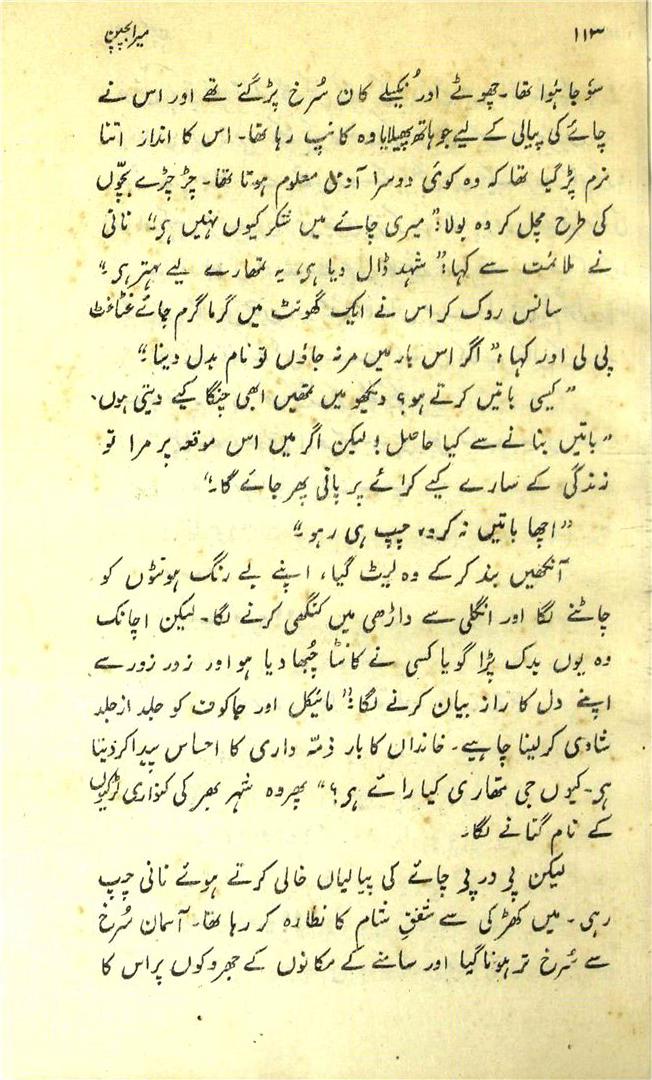 ۱۱۳ میرا بچپن
سوُجا ہُوا تھا۔ چھوٹے اور نُکیلے کان سُرخ پڑ گئے تھے اور اس نے
چائے کی پیالی کے لیے جو ہاتھ پھیلایا وہ کانپ رہا تھا۔ اس کا انداز اتنا
نرم پڑ گیا تھا کہ وہ کوئی دوسرا آدمی معلوم ہوتا تھا۔ چڑچڑے بچّوں
کی طرح مچل کر وہ بولا:” میری چائے میں شکر کیوں نہیں ہی۔“ نانی
نے ملائمت سے کہا:” شہد ڈال دیا ہی، یہ تمھارے لیے بہتر ہی۔“
سانس روک کر اس نے ایک گھونٹ میں گرما گرم چائے غٹاغٹ
پی لی اور کہا:” اگر اس بار میں مر نہ جاؤں تو نام بدل دینا۔“
” کیسی باتیں کرتے ہو؟ دیکھو میں تمھیں ابھی چنگا کیے دیتی ہوں۔
” باتیں بنانے سے کیا حاصل! لیکن اگر میں اس موقعہ پر مرا تو
زندگی کے سارے کیے کرائے پر پانی پھر جائے گا۔“
” اچھا باتیں نہ کرو، چپ ہی رہو۔“
آنکھیں بند کر کے وہ لیٹ گیا، اپنے بے رنگ ہونٹوں کو
چاٹنے لگا اور انگلی سے داڑھی میں کنگھی کرنے لگا۔ لیکن اچانک
وہ یوں بدک پڑا گویا کسی نے کانٹا چُبھا دیا ہو اور زور زور سے
اپنے دل کا راز بیان کرنے لگا:” مائیکل اور جاکوف کو جلد از جلد
شادی کر لینا چاہیے۔ خاندان کا بار ذمّہ داری کا احساس پیدا کر دیتا
ہی۔ کیوں جی تمھاری کیا رائے ہی؟“ پھر وہ شہر بھر کی کنواری لڑکیوں
کے نام گنانے لگا۔
لیکن پی در پی چائے کی پیالیاں خالی کرتے ہوئے نانی چپ
رہی۔ میں کھڑکی سے شفقِ شام کا نظارہ کر رہا تھا۔ آسمان سُرخ
سے سُرخ تر ہوتا گیا اور سامنے کے مکانوں کے جھروکوں پر اس کا